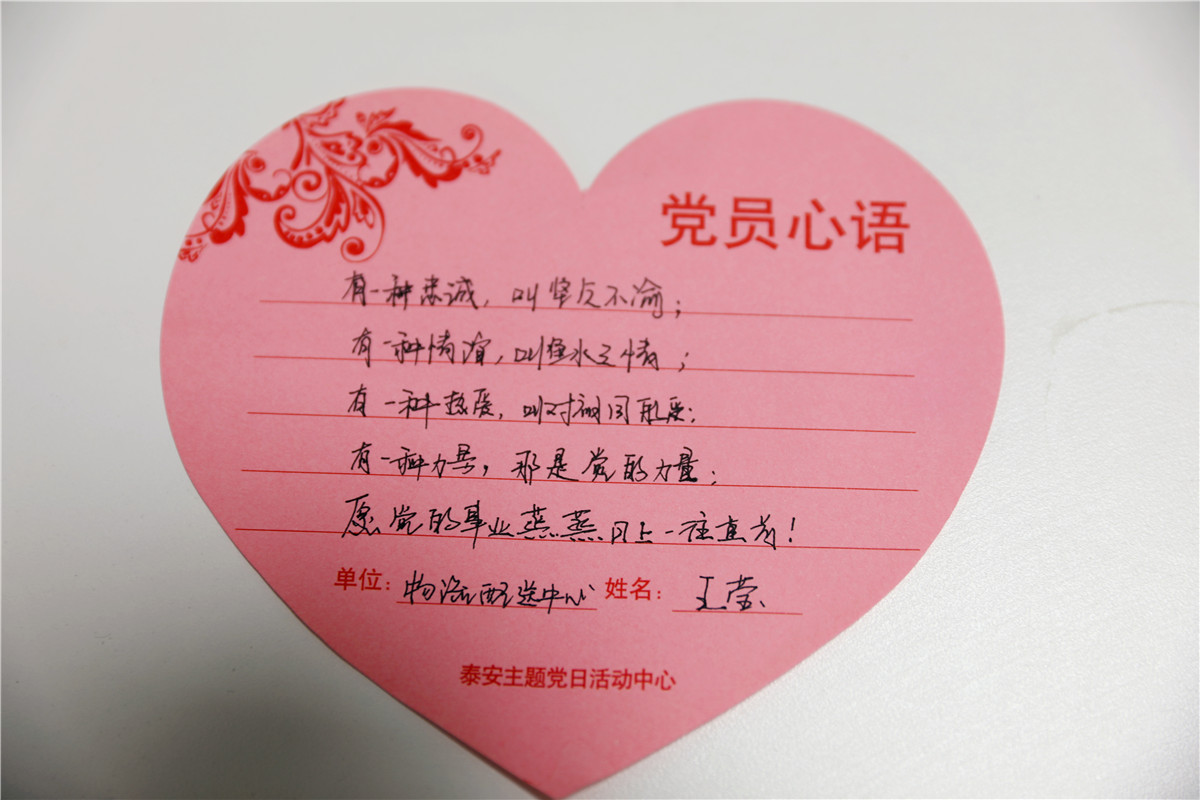 党员心语
有一种忠诚，叫坚贞不渝；
有一种情谊，叫鱼水之情；
有一种热爱，叫对祖国敬爱；
有一种力量，那是党的力量；
愿党的事业蒸蒸日上一往直前！
单位：物流配送中心 姓名：王莹
泰安主题党日活动中心